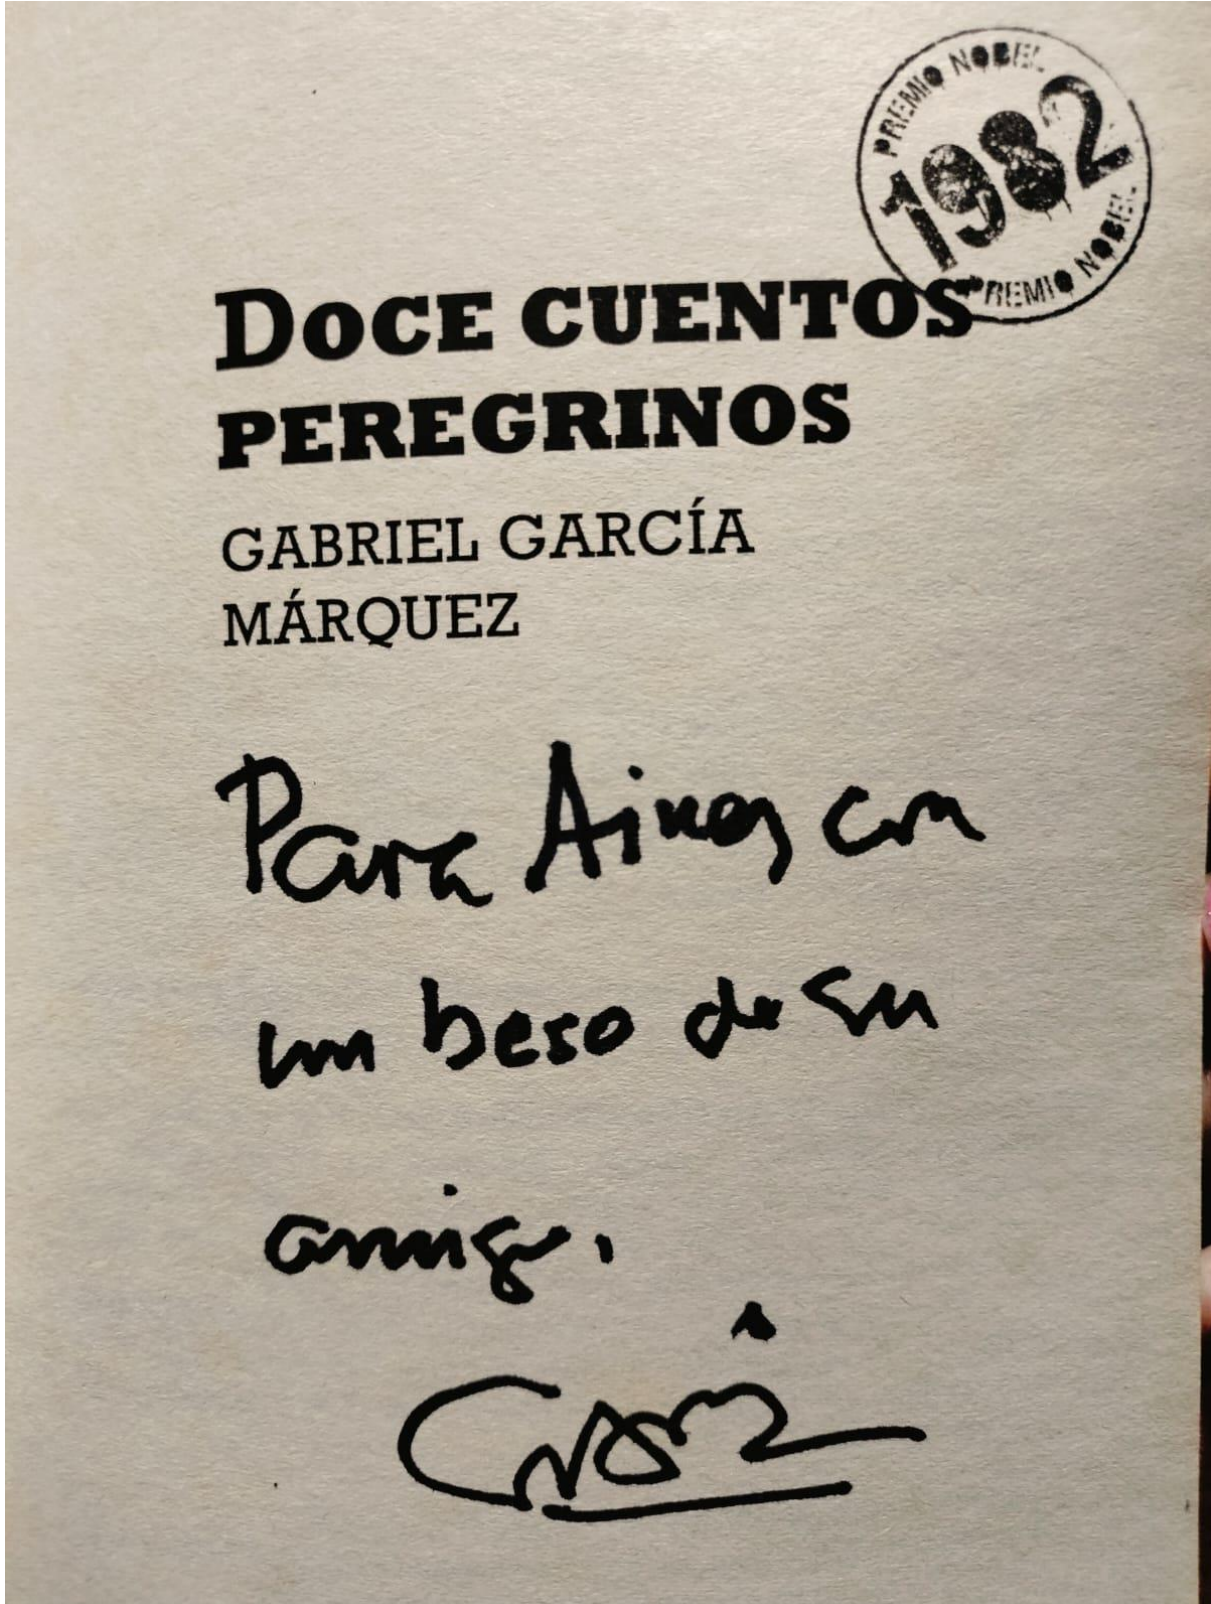 PREMIO NOBEL
1982
PREMIO NOBEL
DOCE CUENTOS
PEREGRINOS
GABRIEL GARCÍA
MÁRQUEZ
Para con
un beso de su
amigo.